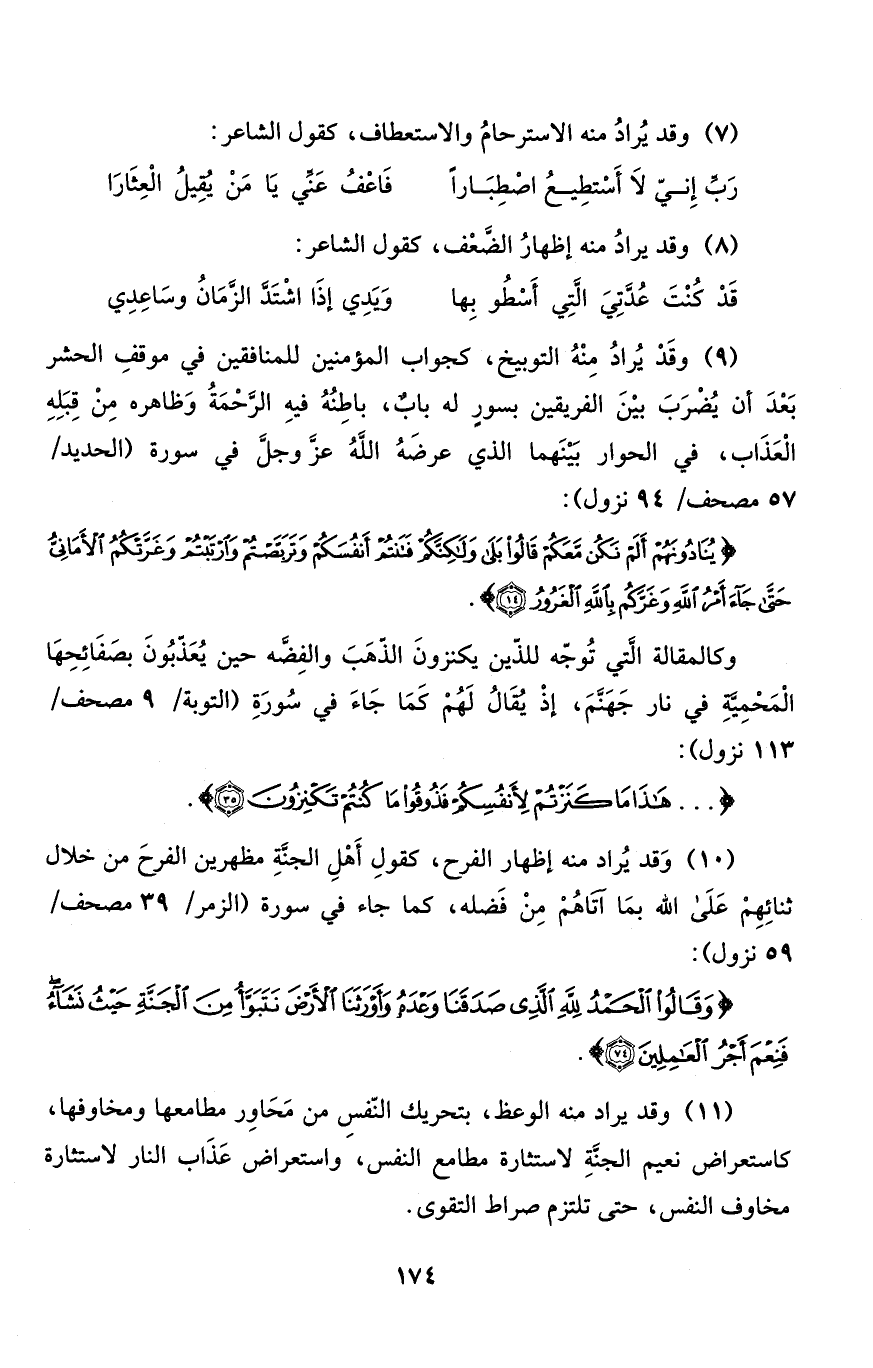 (٧) وقد يُرادُ منه الاسترحامُ والاستعطاف، كقول الشاعر:
رَبِّ إِنِـيّ لاَ أَسْتطِيـعُ اصْطِبَـاراً فَاعْفُ عَنِّي يَا مَنْ يُقِيلُ الْعِثَارَا
(٨) وقد يرادُ منه إظهارُ الضَّعْف، كقول الشاعر:
قَدْ كُنْتَ عُدَّتِيَ الَّتِي أَسْطُو بِها وَيَدِي إذَا اشْتَدَّ الزَّمَانُ وسَاعِدِي
(٩) وقَدْ يُرادُ مِنْهُ التوبيخ، كجواب المؤمنين للمنافقين في موقفِ الحشر
بَعْدَ أن يُضْرَبَ بيْنَ الفريقين بسورٍ له بابٌ، باطِنُهُ فيهِ الرَّحْمَةُ وَظاهره مِنْ قِبَلِهِ
الْعَذَاب، في الحوار بَيْنَهما الذي عرضَهُ اللَّهُ عزَّ وجلَّ في سورة (الحديد/
٥٧ مصحف/ ٩٤ نزول):
﴿يُنَادُونَهُمْ أَلَمْ نَكُن مَّعَكُمْ قَالُوا۟ بَلَىٰ وَلَٰكِنَّكُمْ فَتَنتُمْ أَنفُسَكُمْ وَتَرَبَّصْتُمْ وَٱرْتَبْتُمْ وَغَرَّتْكُمُ ٱلْأَمَانِىُّ
حَتَّىٰ جَآءَ أَمْرُ ٱللَّهِ وَغَرَّكُم بِٱللَّهِ ٱلْغَرُورُ ١٤﴾.
وكالمقالة الَّتي تُوجّه للذّين يكنزونَ الذّهَبَ والفِضَّه حين يُعَذّبُونَ بصَفَائِحِهَا
الْمَحْمِيَّةِ في نار جَهَنَّمَ، إذْ يُقَالُ لَهُمْ كَمَا جَاءَ في سُورَةِ (التوبة/ ٩ مصحف/
١١٣ نزول):
﴿... هَٰذَا مَا كَنَزْتُمْ لِأَنفُسِكُمْ فَذُوقُوا۟ مَا كُنتُمْ تَكْنِزُونَ ٣٥﴾.
(١٠) وَقد يُراد منه إظهار الفرح، كقولِ أَهْلِ الجنَّةِ مظهرين الفرحَ من خلال
ثنائِهِمْ عَلَىٰ الله بمَا آتَاهُمْ مِنْ فَضله، كما جاء في سورة (الزمر/ ٣٩ مصحف/
٥٩ نزول):
﴿وَقَالُوا۟ ٱلْحَمْدُ لِلَّهِ ٱلَّذِى صَدَقَنَا وَعْدَهُ وَأَوْرَثَنَا ٱلْأَرْضَ نَتَبَوَّأُ مِنَ ٱلْجَنَّةِ حَيْثُ نَشَآءُ
فَنِعْمَ أَجْرُ ٱلْعَٰمِلِينَ ٧٤﴾.
(١١) وقد يراد منه الوعظ، بتحريك النّفسِ من مَحَاوِر مطامعها ومخاوفها،
كاستعراض نعيم الجنَّةِ لاستثارة مطامع النفس، واستعراض عَذَاب النار لاستثارة
مخاوف النفس، حتى تلتزم صراط التقوى.
١٧٤